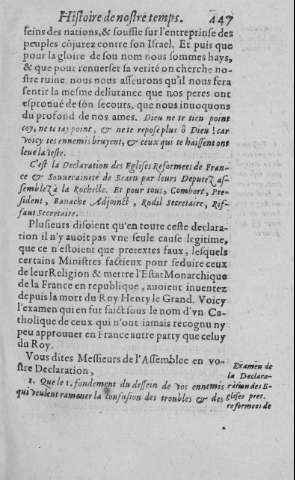 Histoire de nostre temps. 447
seins des nations, & soufle sur l'entreprinse des
peuples cõjurez contre son Israel. Et puis que
pour la gloire de son nom nous sommes hays,
& que pour renuerser sa verité on cherche no-
stre ruine. nous nous asseurons qu'il nous fera
sentir la mesme deliurance que nos peres ont
esprouué de son secours, que nous inuoquons
du profond de nos ames. Dieu ne te tien point
coy, ne te tay point, & ne te repose plus ô Dieu! car
voicy tes ennemis bruyent, & ceux qui te haissent ont
leué la teste.
C'est la Declaration des Eglises Reformees de Fran-
ce & Souueraineté de Bearn par leurs Deputez as-
semblez à la Rochelle. Et pour tous, Combort, Pre-
sident, Banache Adjoinct, Rodil Secretaire, Rif-
faut Secretaire.
Plusieurs disoient qu'en toute ceste declara-
tion il n'y auoit pas vne seule cause legitime,
que ce n'estoient que pretextes faux, lesquels
certains Ministres factieux pour seduire ceux
de leur Religion & mettre l'Estat Monarchique
de la France en republique, auoient inuentez
depuis la mort du Roy Henry le Grand. Voicy
l'examen qui en fut faict sous le nom d'vn Ca-
tholique de ceux qui n'ont iamais recognu ny
peu approuuer en France autre party que celuy
du Roy.
Vous dites Messieurs de l'Assemblee en vo-
stre Declaration,
1. Que le 1. fondement du dessein de vos ennemis
qui veulent ramener la confusion des troubles & des
Examen de
la Declara-
ration des E-
glises pret.
reformees de